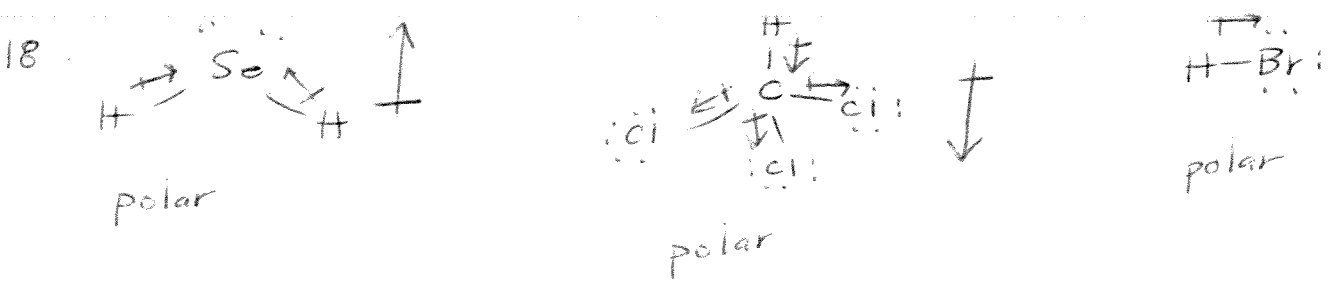 18
H Se H
polar
H
C
:Cl Cl:
:Cl:
polar
H—Br:
polar